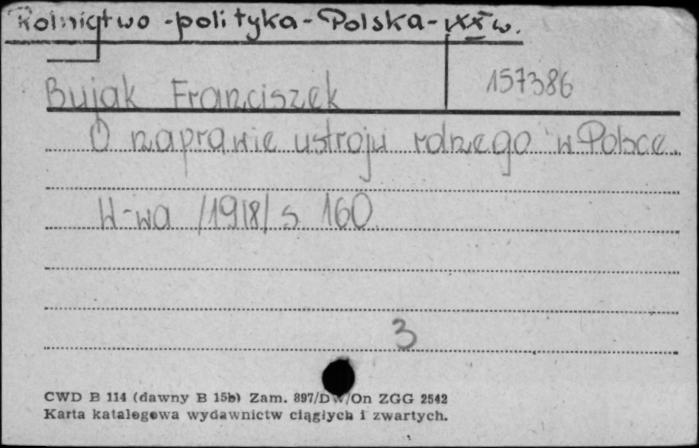 Rolnictwo - polityka - Polska - XX w.
157386
Bujak Franciszek
O naprawie ustroju rolnego w Polsce.
W-wa /1918/ s. 160.
3
CWD B 114 (dawny B 15b) Zam. 897/DW/On ZGG 2542
Karta katalogowa wydawnictw ciągłych i zwartych.